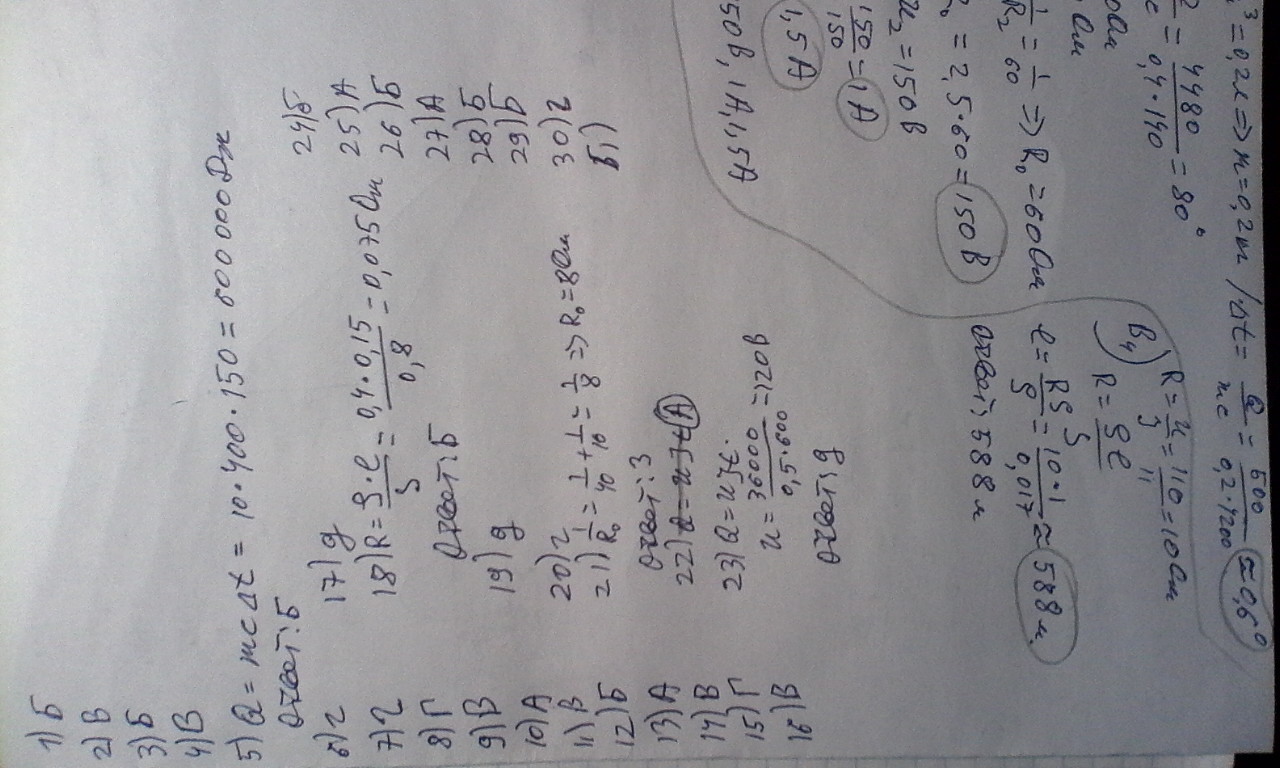 1) Б
2) В
3) Б
4) В
5) Q = mcΔt = 10·400·150 = 600 000 Дж
Ответ: Б
6) г
7) г
8) Г
9) В
10) А
11) В
12) Б
13) А
14) В
15) Г
16) В
17) g
18) R = ρ·l/S = 0,4·0,15/0,8 = 0,075 Ом
Ответ: Б
19) g
20) г
21) 1/R₀ = 1/40 + 1/10 = 1/8 => R₀ = 8 Ом
Ответ: 3
22) Q = UIt А
23) Q = UIt.
U = 36000/0,5·600 = 120 В
Ответ: g
24) Б
25) А
26) Б
27) А
28) Б
29) Б
30) г
Б1)
³ = 0,2л => m = 0,2кг / Δt = Q/mc = 500/0,2·4200 ≈ 0,6°
= 4480/0,4·140 = 80°
Ом
1/R₂ = 1/60 => R₀ = 60 Ом
= 2,5·60 = 150 В
U₂ = 150 В
150/150 = 1А
1,5А
50В, 1А, 1,5А
B4) R = U/I = 110/11 = 10 Ом
R = ρl/S
l = RS/ρ = 10·1/0,017 ≈ 588 м
Ответ: 588 м